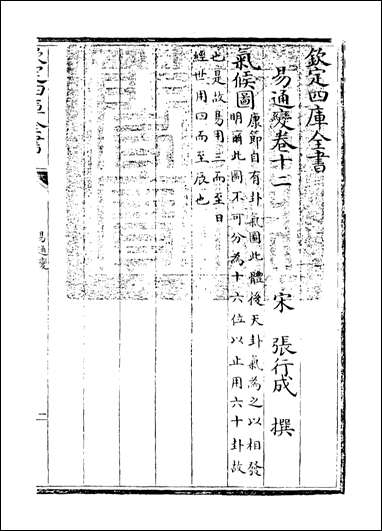 欽定四庫全書
易通變卷十二
宋 張行成 撰
氣候圖
康節自有卦氣圖此體後天卦氣為之以相發
明爾此圖不可分為十六位以止用六十卦故
也是故易用三而至日
經世用四而至辰也
易通變